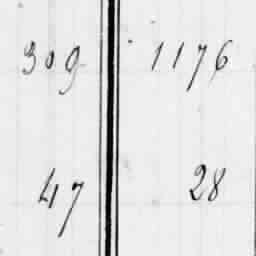 309 1176
47 28